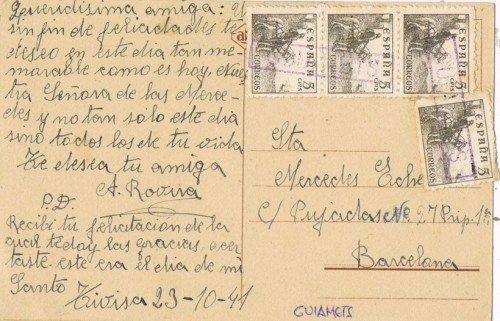 Queridísima amiga: Un
sin fin de felicidades te
deseo en este día tan me-
marable como es hoy, Nues
tra Señora de las Merce-
des y no tan solo este día
sino todos los de tu vida
Te desea tu amiga
A. Rovira
P.D.
Recibi tu felicitación de la
qual te doy las gracias, acer
taste este era el dia de mi
Santo
Tivisa 23-10-41
ESPAÑA
5 CTS
CORREOS
ESPAÑA
5 CTS
CORREOS
ESPAÑA
5 CTS
CORREOS
ESPAÑA
5
CORREOS
Sta
Mercedes
C/ Pujadas Nº 27 Prip. 1ª
Barcelona
GUIAMETS